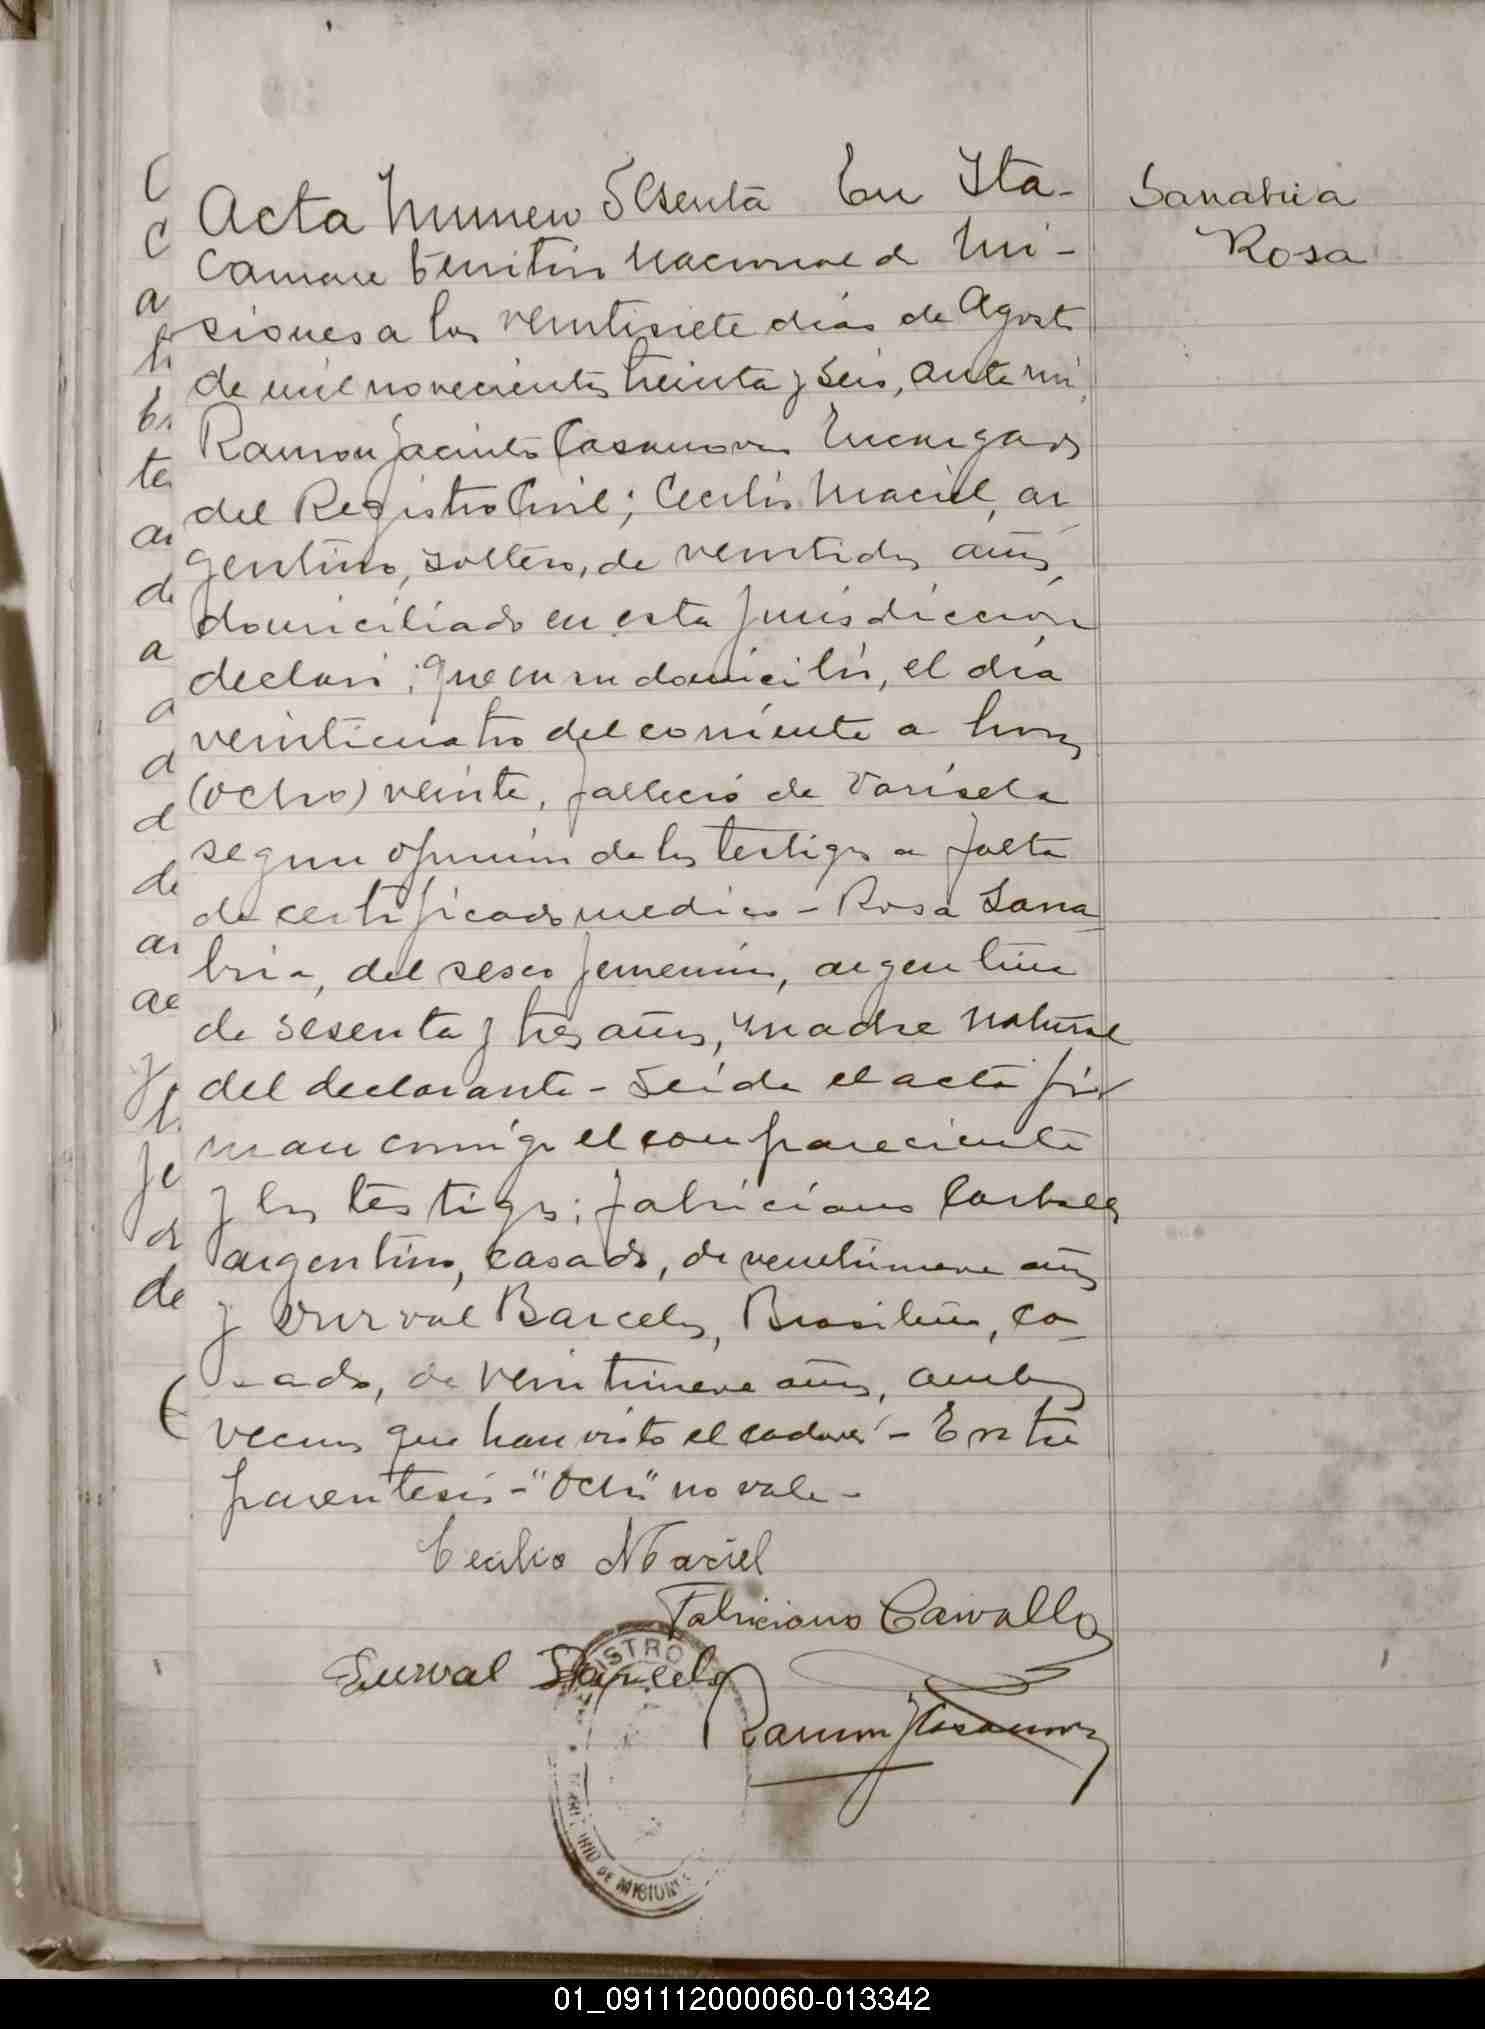 Acta Numero Sesenta En Ita-
Sanabria
Rosa
caruare territorio Nacional de Mi-
siones a los veintisiete dias de Agosto
de mil novecientos treinta y seis, ante mi,
Ramon Jacinto Casanova Encargado
del Registro Civil; Cecilio Maciel, ar
gentino, soltero, de veintidos años,
domiciliado en esta jurisdiccion
declaró: Que en su domicilio, el día
veinticuatro del corriente a horas
(ocho) veinte, falleció de Varisela
segun opinión de los testigos a falta
de certificado medico - Rosa Sana
bria, del sexo femenino, argentina
de sesenta y tres años, madre natural
del declarante - Leída el acta fir
man conmigo el compareciente
y los testigos: Fabriciano
argentino, casado, de veintinueve años
y Durval Barcelos, Brasilero, ca-
sado, de veintinueve años, ambos
vecinos que han visto el cadaver - Entre
parentesis - "Ocho" no vale -
Cecilio Maciel
Fabriciano Carvallo
Durval Barcelos
Ramon J Casanova
ISTRO
DE MISIONES
01_091112000060-013342